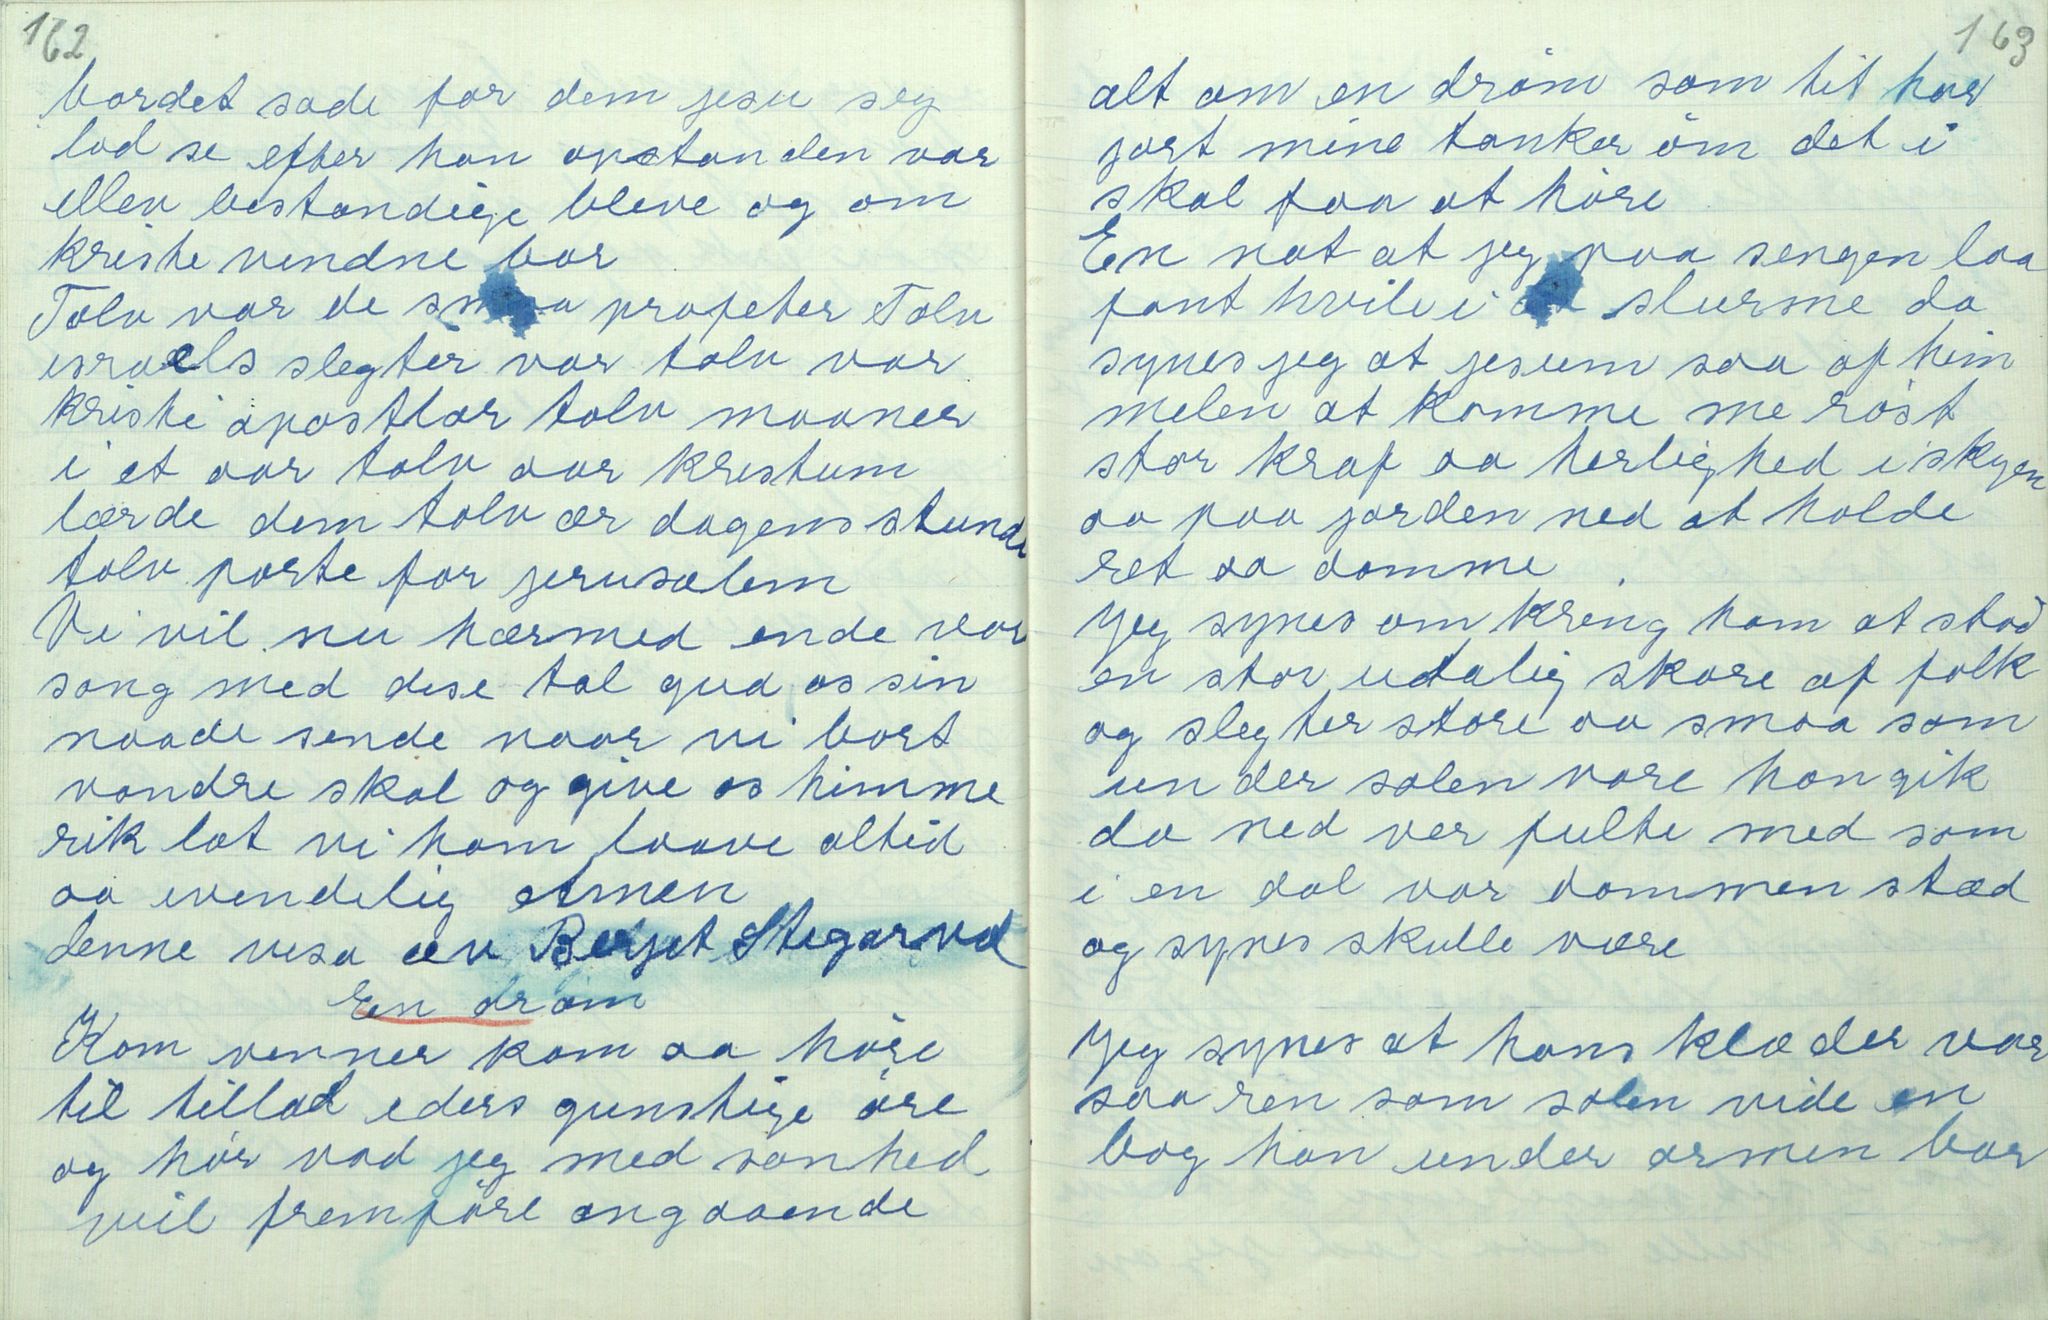 162
bordet sade for dem jesu seg
lod se efter han opstanden var
ellev bestandige bleve og om
kriste vendne bar
Tolv var de smaa profeter Tolv
israels slegter var tolv var
kristi apostlar tolv maaner
i et aar tolv aar kristum
lærde dem tolv ær dagens stunde
tolv porte for jerusalem
Vi vil nu hærmed ende vor
sang med dise tal gud os sin
naade sende naar vi bort
vandre skal og give os himme
rik lat vi ham laave altid
aa evendelig Amen
denne visa av Berjet Stegarvol
En drøm
Kom venner kom aa høre
til tillad eders gunstige øre
og hør vad jeg med sanhed
vil fremføre angaaende
163
alt om en drøm som tit har
jort mine tanker om det i
skal faa at høre
En nat at jeg paa sengen laa
fant hvile i slurme da
synes jeg at jesum saa af him
melen at komme me røst
stor kraf aa herlighed i skyen
aa paa jorden ned at holde
ret aa domme
Jeg synes om kring ham at stod
en stor utalig skare af folk
og slegter store aa smaa som
under solen vare han gik
da ned ver fulte med som
i en dal var dommen stæd
og synes skulle være
Jeg synes at hans klæder var
saa ren som solen vide en
bog han under armen bar